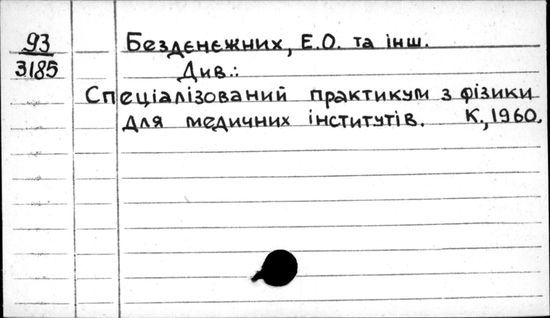 93
3185
Безденежних, Е.О. та інш.
Див.:
Спеціалізований практикум з фізики
для медичних інститутів. К., 1960.